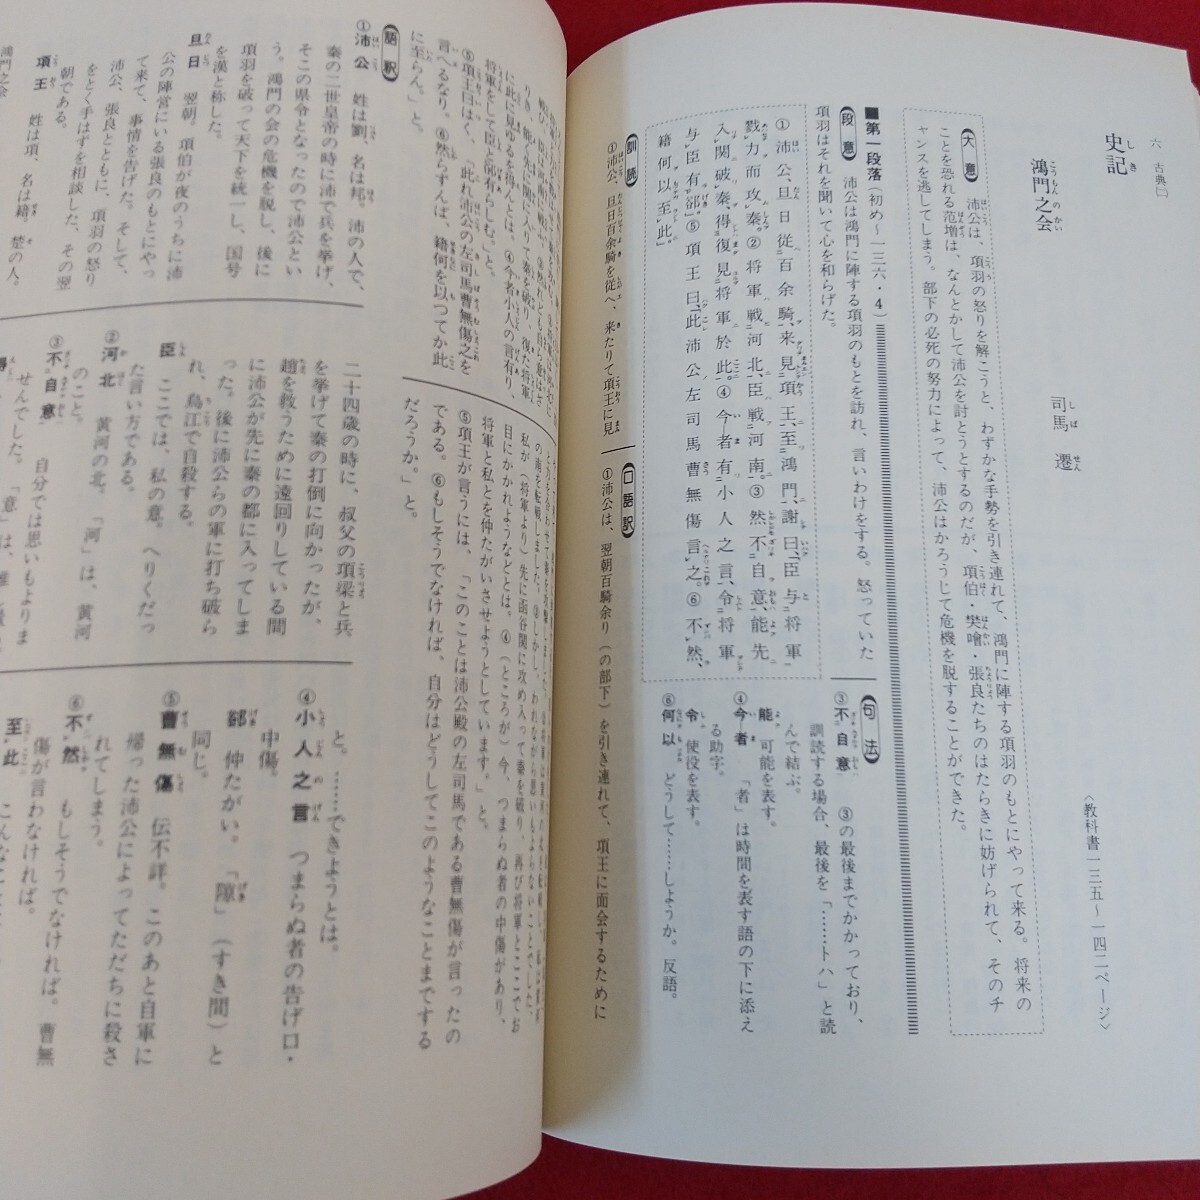 六 古典㈡
史記
鴻門之会
司馬 遷
〈教科書一三五～一四二ページ〉
大意 沛公は、項羽の怒りを解こうと、わずかな手勢を引き連れて、鴻門に陣する項羽のもとにやって来る。将来の
ことを恐れる范増は、なんとかして沛公を討とうとするのだが、項伯・樊噲・張良たちのはたらきに妨げられて、そのチ
ャンスを逃してしまう。部下の必死の努力によって、沛公はかろうじて危機を脱することができた。
■第一段落（初め～一三六・4）
段意 沛公は鴻門に陣する項羽のもとを訪れ、言いわけをする。怒っていた
項羽はそれを聞いて心を和らげた。
①沛公、旦日従百余騎、来見項王、至鴻門、謝曰、臣与将軍
戮力而攻秦。②将軍戦河北、臣戦河南。③然不自意、能先
入関破秦、得復見将軍於此。④今者有小人之言、令将軍
与臣有郤。⑤項王曰、此沛公左司馬曹無傷言之。⑥不然、
籍何以至此。
句法
③不自意 ③の最後までかかっており、
訓読する場合、最後を「……トハ」と読
んで結ぶ。
能 可能を表す。
④今者 「者」は時間を表す語の下に添え
る助字。
令 使役を表す。
⑥何以 どうして……しようか。反語。
訓読
①沛公、旦日百余騎を従へ、来たりて項王に見
口語訳
①沛公は、翌朝百騎余り（の部下）を引き連れて、項王に面会するために
に此に見ゆるを得んとは。④今者小人の言有り、
将軍をして臣と郤有らしむ。」と。
⑤項王曰はく、「此れ沛公の左司馬曹無傷之を
言へるなり。⑥然らずんば、籍何を以つてか此
に至らん。」と。
私が（将軍より）先に函谷関に攻め入って秦を破り、再び将軍とここでお
目にかかれようなどとは。④（ところが）今、つまらぬ者の中傷があり、
将軍と私とを仲たがいさせようとしています。」と。
⑤項王が言うには、「このことは沛公殿の左司馬である曹無傷が言ったの
である。⑥もしそうでなければ、自分はどうしてこのようなことまでする
だろうか。」と。
語釈
①沛公 姓は劉、名は邦。沛の人で、
秦の二世皇帝の時に沛で兵を挙げ、
そこの県令となったので沛公とい
う。鴻門の会の危機を脱し、後に
項羽を破って天下を統一し、国号
を漢と称した。
旦日 翌朝。項伯が夜のうちに沛
公の陣営にいる張良のもとにやっ
て来て、事情を告げた。そして、
沛公、張良とともに、項羽の怒り
をとく手はずを相談した。その翌
朝である。
項王 姓は項、名は籍。楚の人。
二十四歳の時に、叔父の項梁と兵
を挙げて秦の打倒に向かったが、
趙を救うために遠回りしている間
に沛公が先に秦の都に入ってしま
った。後に沛公らの軍に打ち破ら
れ、烏江で自殺する。
臣 ここでは、私の意。へりくだっ
た言い方である。
②河北 黄河の北。「河」は、黄河
のこと。
③不自意 自分では思いもよりま
せんでした。「意」は、
と。……できようとは。
④小人之言 つまらぬ者の告げ口・
中傷。
郤 仲たがい。「隙」（すき間）と
同じ。
⑤曹無傷 伝不詳。このあと自軍に
帰った沛公によってただちに殺さ
れてしまう。
⑥不然 もしそうでなければ。曹無
傷が言わなければ。
至此 こんなこと
鴻門之会